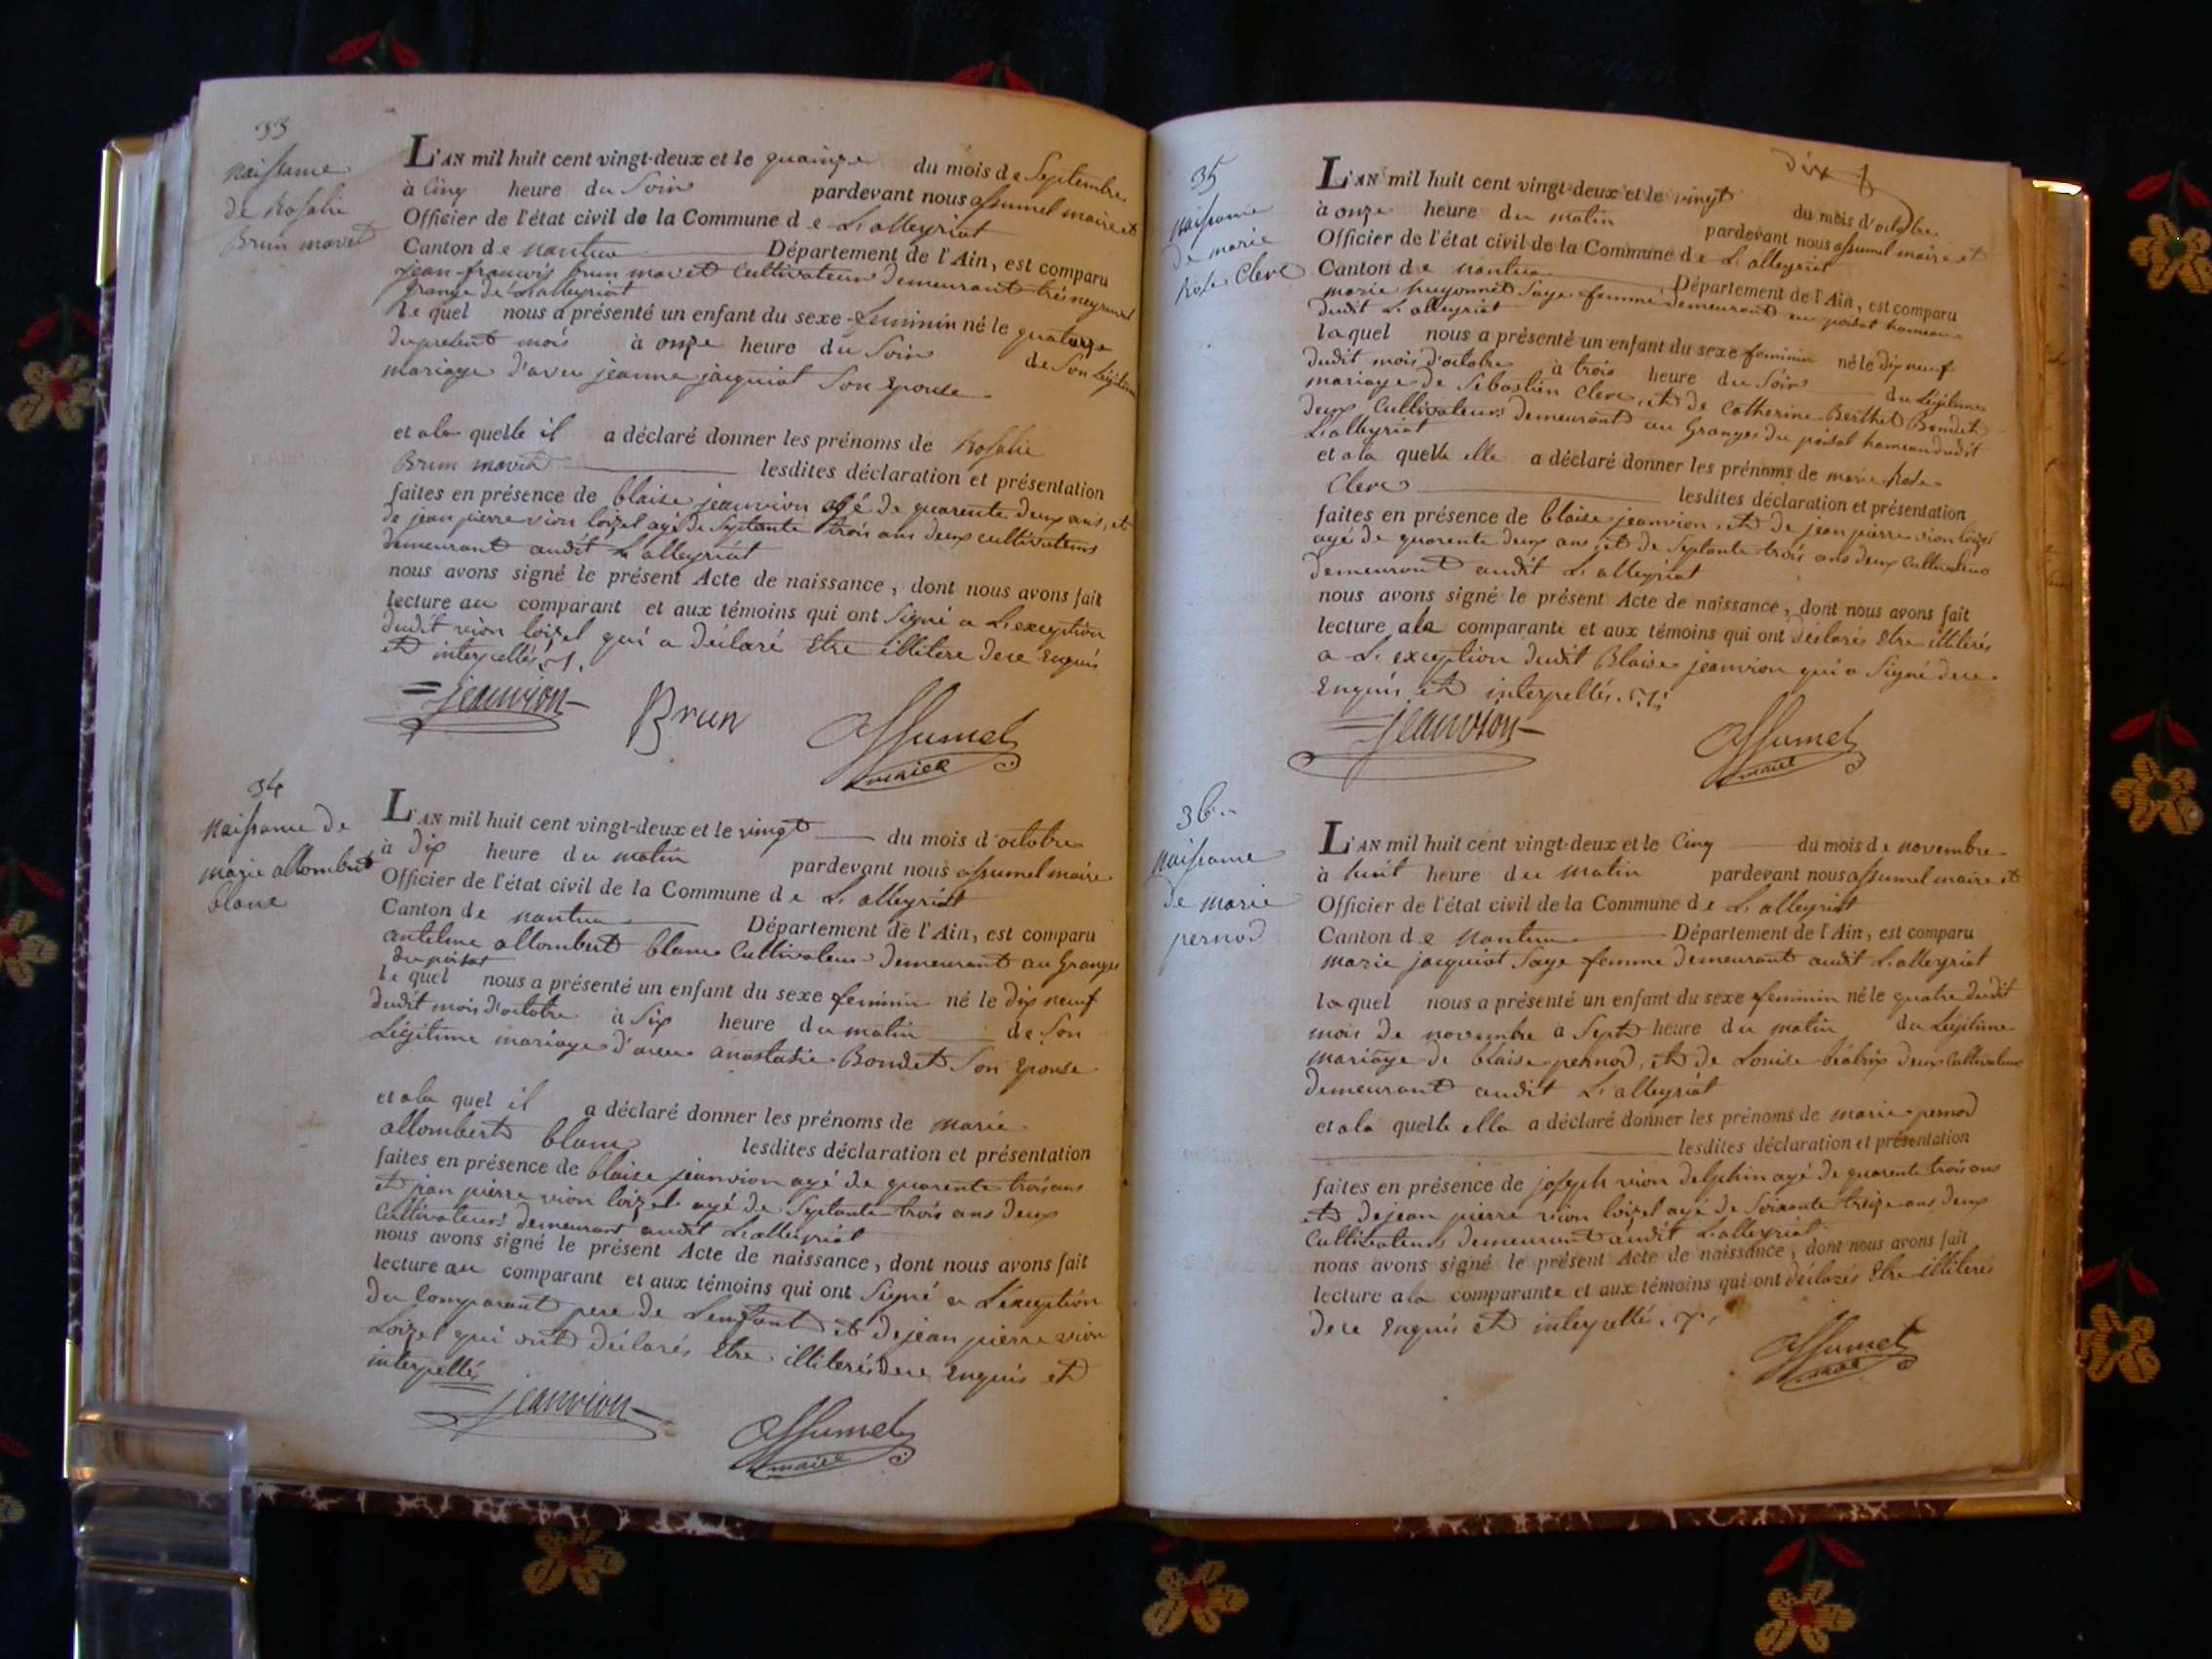 33
naissance
de Rosalie
Brun mavet
L'AN mil huit cent vingt-deux et le quainze du mois de Septembre
à Cinq heure du Soir pardevant nous assumel maire et
Officier de l'état civil de la Commune de L'alleyriat
Canton de nantua Département de l'Ain, est comparu
jean françois brun mavet Cultivateur demeurant
grange de L'alleyriat
le quel nous a présenté un enfant du sexe feminin né le quatorze
du present mois à onze heure du Soir de Son Légitime
mariage d'avec jeanne jacquiot Son Epouse
et ala quelle il a déclaré donner les prénoms de Rosalie
Brun mavet lesdites déclaration et présentation
faites en présence de blaise jeanvion agé de quarente deux ans, et
de jean pierre vion loizel agé de Septante trois ans deux cultivateurs
demeurant audit L'alleyriat
nous avons signé le présent Acte de naissance, dont nous avons fait
lecture au comparant et aux témoins qui ont Signé a L'exception
dudit vion loizel qui a déclaré Etre illitere dece Enquis
et interpellés
jeanvion Brun assumel
maire
34
naissance de
marie allombert
blanc
L'AN mil huit cent vingt-deux et le vingt du mois d'octobre
à dix heure du matin pardevant nous assumel maire
Officier de l'état civil de la Commune de L'alleyriat
Canton de nantua Département de l'Ain, est comparu
antelme allombert blanc Cultivateur demeurant au Granges
du poizat
le quel nous a présenté un enfant du sexe feminin né le dix neuf
dudit mois d'octobre à Six heure du matin de Son
Légitime mariage d'avec anastasie Bondet Son Epouse
et ala quel il a déclaré donner les prénoms de marie
allombert blanc lesdites déclaration et présentation
faites en présence de blaise jeanvion agé de quarente trois ans
et jean pierre vion loizel agé de Septante trois ans deux
Cultivateurs demeurant audit L'alleyriat
nous avons signé le présent Acte de naissance, dont nous avons fait
lecture au comparant et aux témoins qui ont Signé a L'exception
du Comparant pere de L'enfant et de jean pierre vion
Loizel qui ont déclarés Etre illiterés dece Enquis et
interpellés
jeanvion assumel
maire
dix
35
naissance
de marie
Rose Clerc
L'AN mil huit cent vingt-deux et le vingt du mois d'octobre
à onze heure du matin pardevant nous assumel maire et
Officier de l'état civil de la Commune de L'alleyriat
Canton de nantua Département de l'Ain, est comparu
marie huyonnet Sage femme demeurant au poizat hameau
dudit L'alleyriat
laquel nous a présenté un enfant du sexe feminin né le dix neuf
dudit mois d'octobre à trois heure du Soir du Légitime
mariage de Sebastien Clerc, et de Catherine Berthet Bondet
deux Cultivateurs demeurant au Granges du poizat hameau dudit
L'alleyriat
et ala quelle elle a déclaré donner les prénoms de marie Rose
Clerc lesdites déclaration et présentation
faites en présence de blaise jeanvion, et de jean pierre vion loizel
agé de quarente deux ans et de Septante trois ans deux Cultivateurs
demeurant audit L'alleyriat
nous avons signé le présent Acte de naissance, dont nous avons fait
lecture ala comparante et aux témoins qui ont déclarés Etre illiterés
a L'exception dudit Blaise jeanvion qui a Signé dece
Enquis et interpellés
jeanvion assumel
maire
36
naissance
de marie
pernod
L'AN mil huit cent vingt-deux et le Cinq du mois de novembre
à huit heure du matin pardevant nous assumel maire et
Officier de l'état civil de la Commune de L'alleyriat
Canton de nantua Département de l'Ain, est comparu
marie jacquiot Sage femme demeurant audit L'alleyriat
laquel nous a présenté un enfant du sexe feminin né le quatre dudit
mois de novembre à Sept heure du matin du Légitime
mariage de blaise pernod, et de Louise béatrix deux Cultivateurs
demeurant audit L'alleyriat
et ala quelle ella a déclaré donner les prénoms de marie pernod
lesdites déclaration et présentation
faites en présence de joseph vion delphin agé de quarente trois ans
et de jean pierre vion loizel agé de Soixante treize ans deux
Cultivateurs demeurant audit L'alleyriat
nous avons signé le présent Acte de naissance, dont nous avons fait
lecture ala comparante et aux témoins qui ont déclarés Etre illiteres
dece Enquis et interpellés
assumel
maire